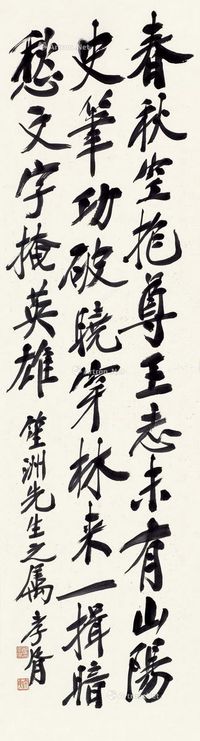 春秋空抱尊王志未有山陽
史筆功破曉穿林來一揖暗
愁文字掩英雄
笙洲先生之属 孝胥